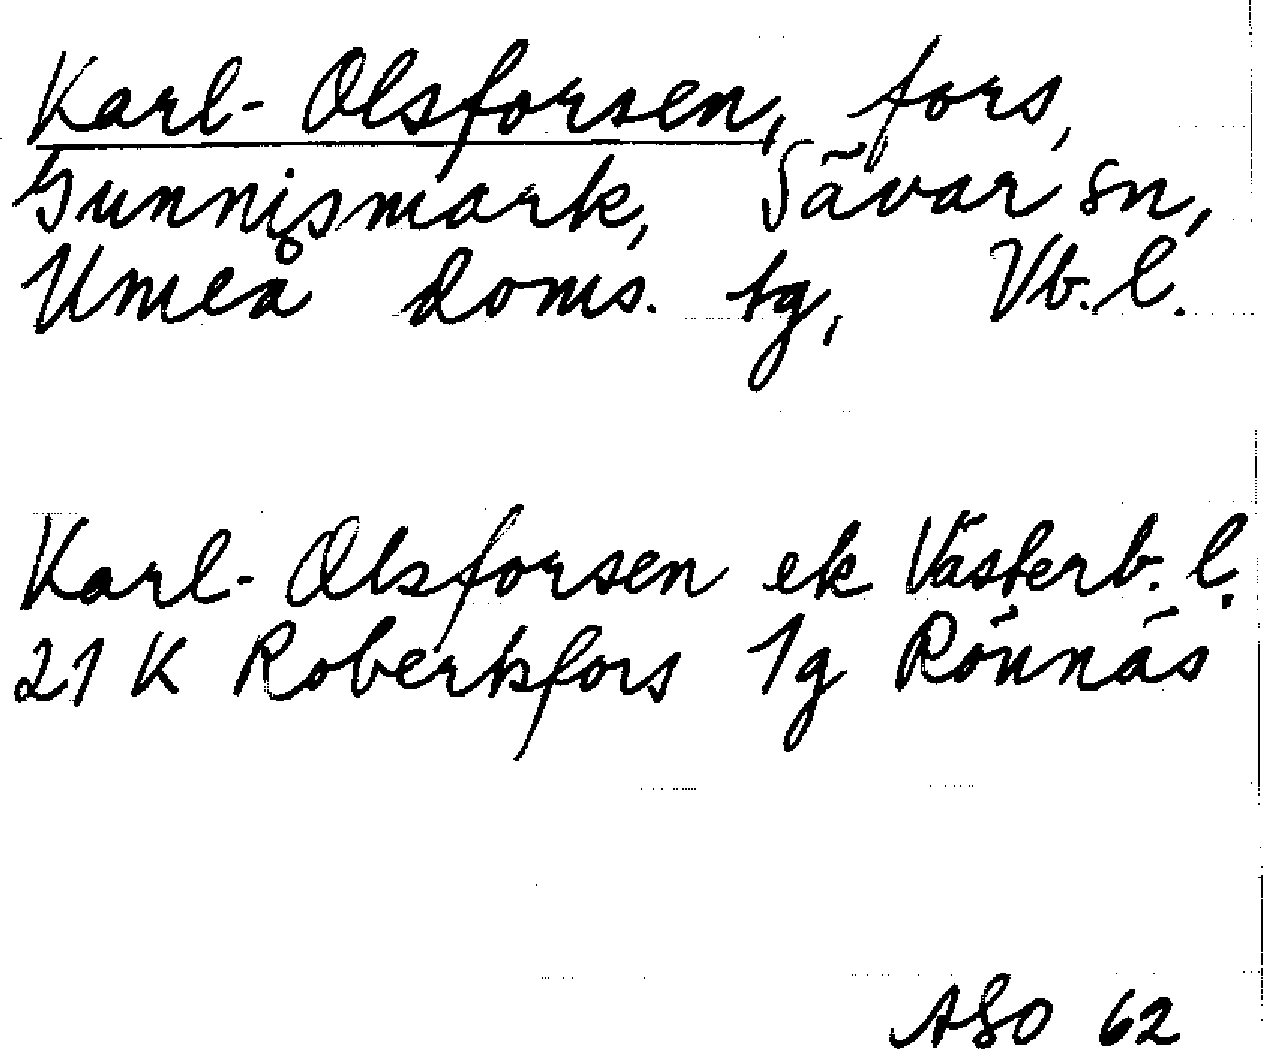 Karl-Olsforsen, fors,
Gunnismark, Sävar sn,
Umeå doms. tg, Vb. l.
Karl-Olsforsen ek Västerb. l.
21 K Robertsfors 1g Rönnäs
ASO 62